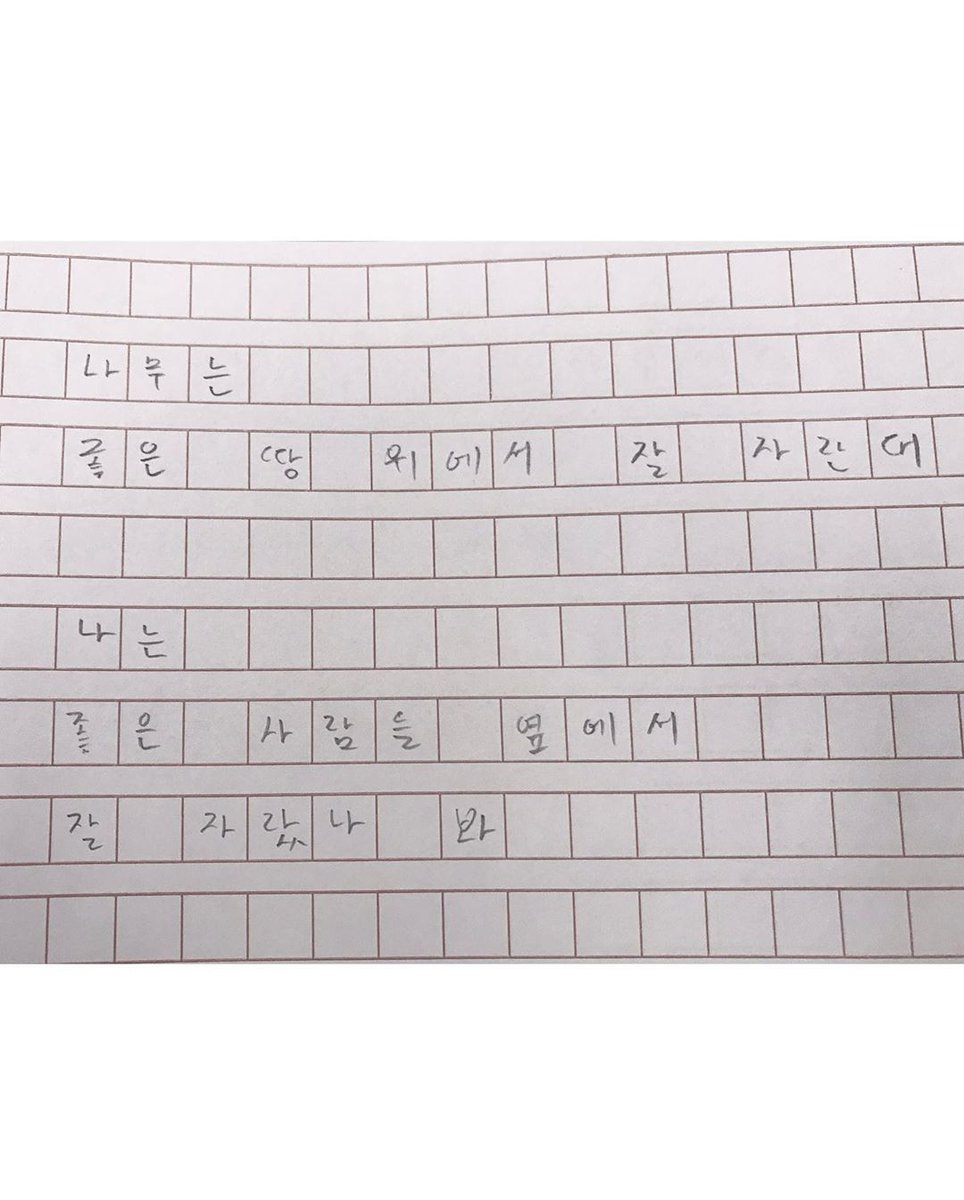 나무는
좋은 땅 위에서 잘 자란대
나는
좋은 사람들 옆에서
잘 자랐나 봐